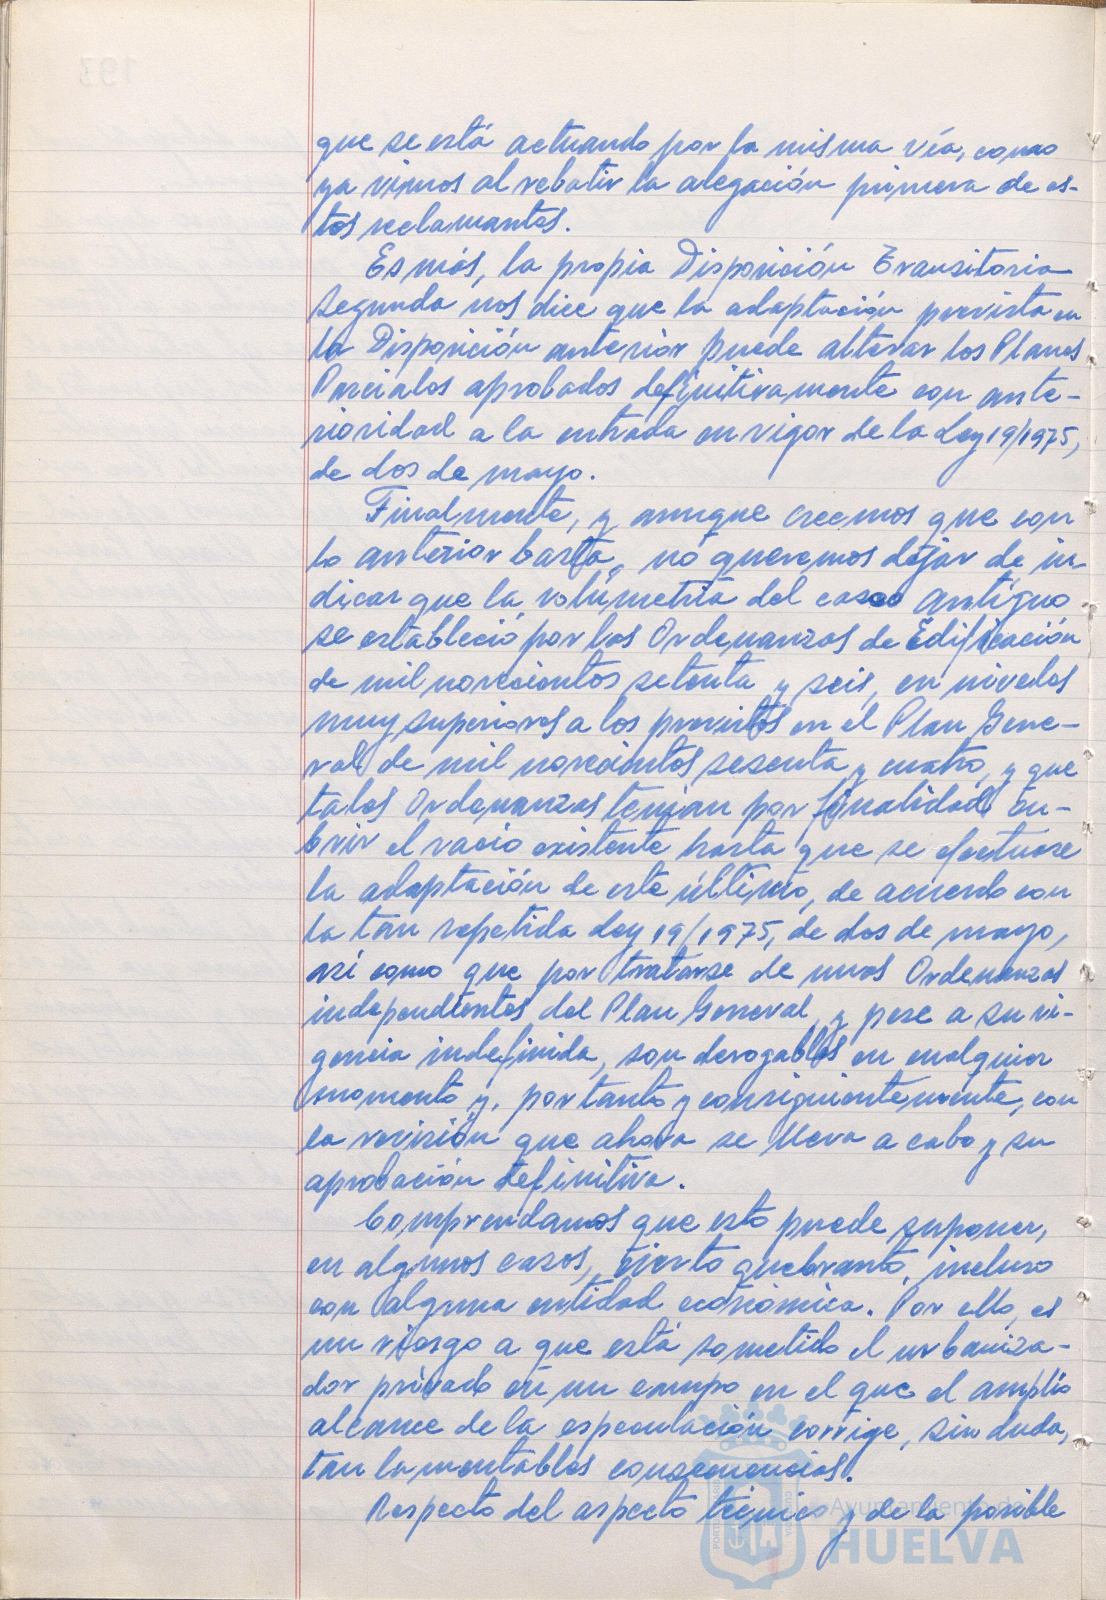 que se está actuando por la misma vía, como
ya vimos al rebatir la alegación primera de es-
tos reclamantes.
Es más, la propia Disposición Transitoria
Segunda nos dice que la adaptación prevista en
la Disposición anterior puede alterar los Planes
Parciales aprobados definitivamente con ante-
rioridad a la entrada en vigor de la Ley 19/1975,
de dos de mayo.
Finalmente, y aunque creemos que con
lo anterior basta, no queremos dejar de in-
dicar que la volumetría del casco antiguo
se estableció por las Ordenanzas de Edificación
de mil novecientos setenta y seis, en niveles
muy superiores a los previstos en el Plan Gene-
ral de mil novecientos sesenta y cuatro, y que
tales Ordenanzas tenían por finalidad cu-
brir el vacío existente hasta que se efectuase
la adaptación de este último, de acuerdo con
la tan repetida Ley 19/1975, de dos de mayo,
así como que por tratarse de unas Ordenanzas
independientes del Plan General, y pese a su vi-
gencia indefinida, son derogables en cualquier
momento y, por tanto y consiguientemente, con
la revisión que ahora se lleva a cabo y su
aprobación definitiva.
Comprendamos que esto puede suponer,
en algunos casos, cierto quebranto, incluso
con alguna entidad económica. Por ello, es
un riesgo a que está sometido el urbaniza-
dor privado en un campo en el que el amplio
alcance de la especulación corrige, sin duda,
tan lamentables consecuencias.
Respecto del aspecto técnico y de la posible
Ayuntamiento de
HUELVA